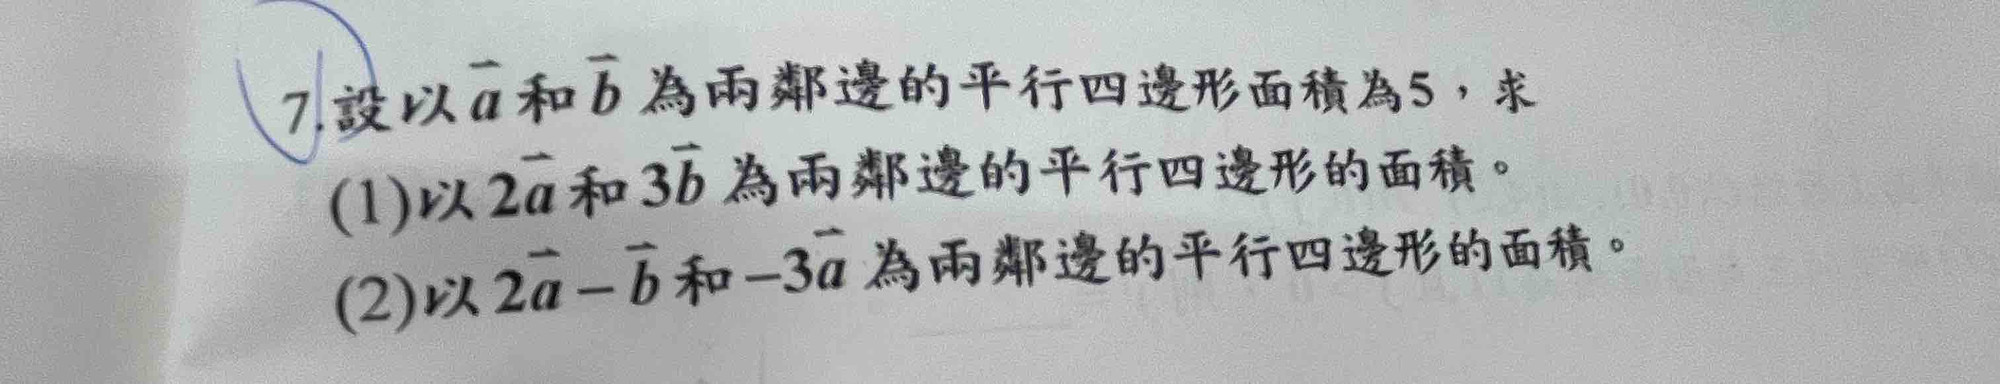 7.設以 $\vec{a}$ 和 $\vec{b}$ 為兩鄰邊的平行四邊形面積為5,求
(1)以 $2\vec{a}$ 和 $3\vec{b}$ 為兩鄰邊的平行四邊形的面積。
(2)以 $2\vec{a}-\vec{b}$ 和 $-3\vec{a}$ 為兩鄰邊的平行四邊形的面積。